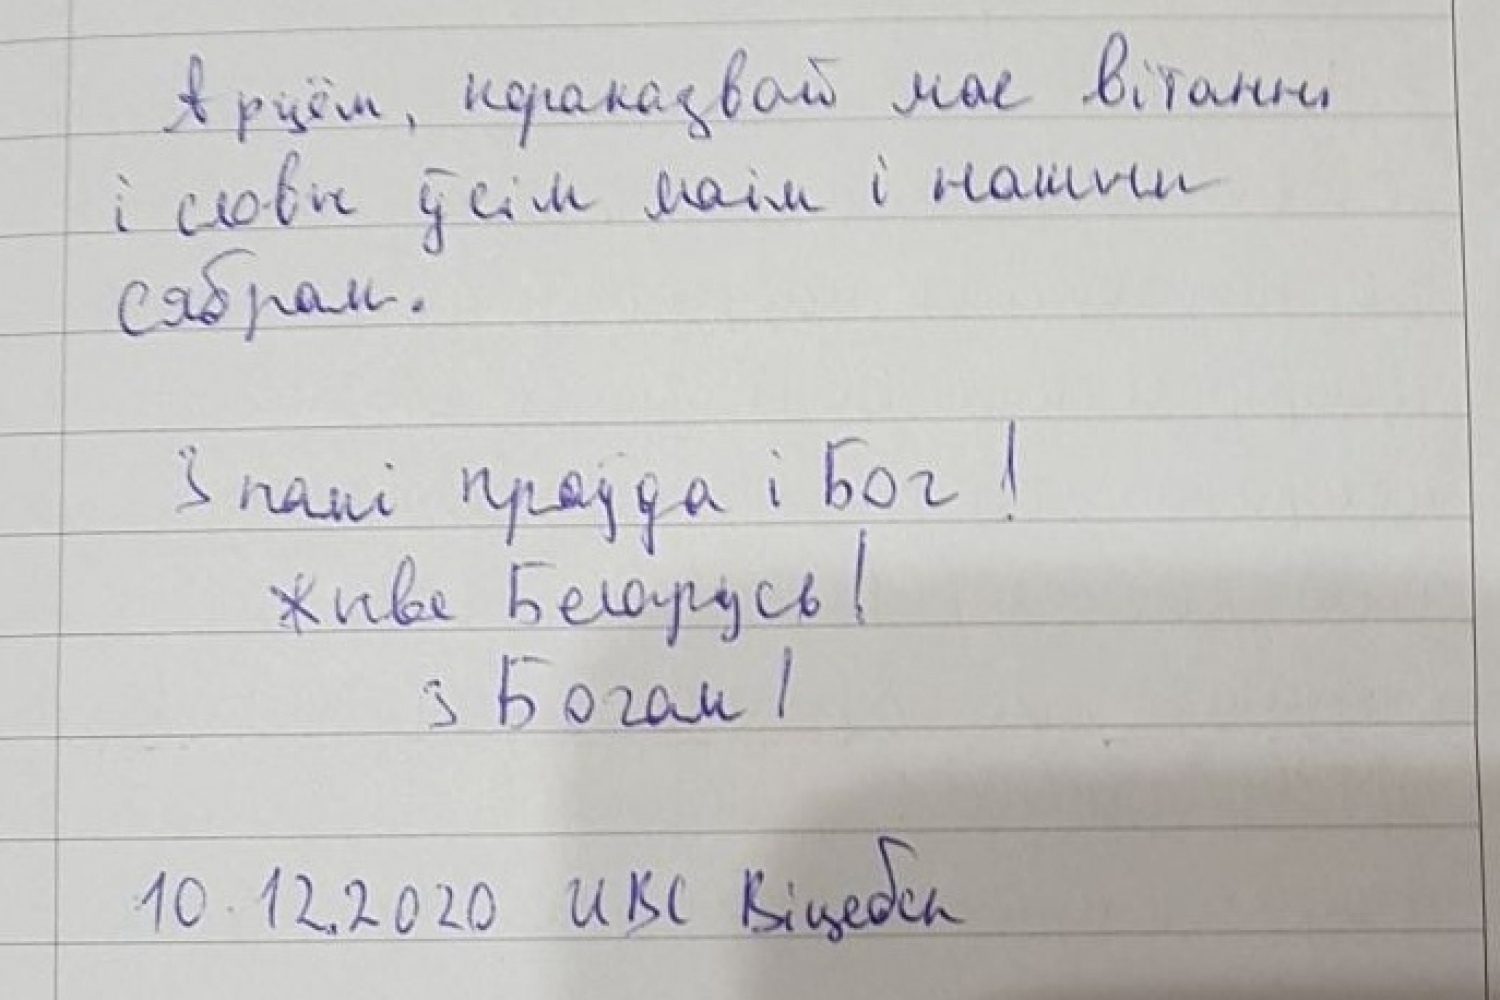 Арцём, пераказвай мае вітанні
і словы ўсім маім і нашым
сябрам.
З намі праўда і Бог!
Жыве Беларусь!
з Богам!
10.12.2020 ИВС Віцебск